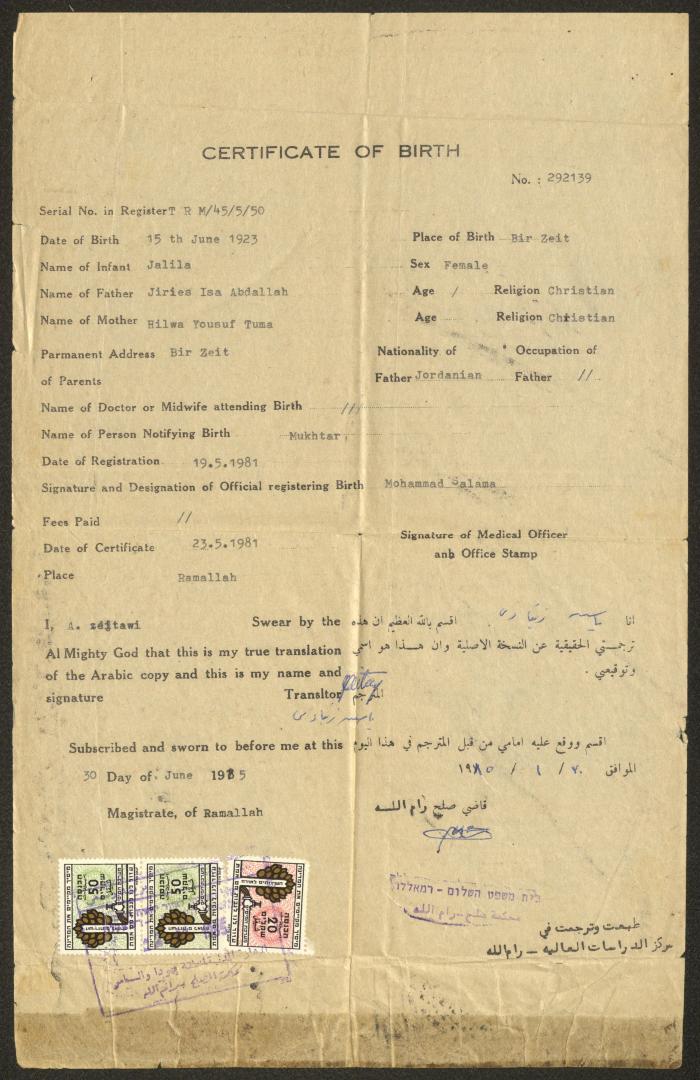 CERTIFICATE OF BIRTH
No. : 292139
Serial No. in Register T R M/45/5/50
Date of Birth 15 th June 1923 Place of Birth Bir Zeit
Name of Infant Jalila Sex Female
Name of Father Jiries Isa Abdallah Age / Religion Christian
Name of Mother Hilwa Yousuf Tuma Age Religion Christian
Parmanent Address Bir Zeit Nationality of Occupation of
of Parents Father Jordanian Father //
Name of Doctor or Midwife attending Birth ///
Name of Person Notifying Birth Mukhtar
Date of Registration 19.5.1981
Signature and Designation of Official registering Birth Mohammad Salama
Fees Paid //
Signature of Medical Officer
and Office Stamp
Date of Certificate 23.5.1981
Place Ramallah
I, A. zeitawi Swear by the
Al Mighty God that this is my true translation
of the Arabic copy and this is my name and
signature Transltor
انا اقسم بالله العظيم ان هذه
ترجمتي الحقيقية عن النسخة الاصلية وان هــذا هو اسمي
وتوقيعي .
المترجم
Subscribed and sworn to before me at this
30 Day of June 1985
Magistrate, of Ramallah
اقسم ووقع عليه امامي من قبل المترجم في هذا اليوم
الموافق
قاضي صلح رام اللـه
בית משפט השלום - רמאללה
محكمة صلح - رام الله
طبعت وترجمت في
مركز الدراسات العالية - رام الله
50
50
20